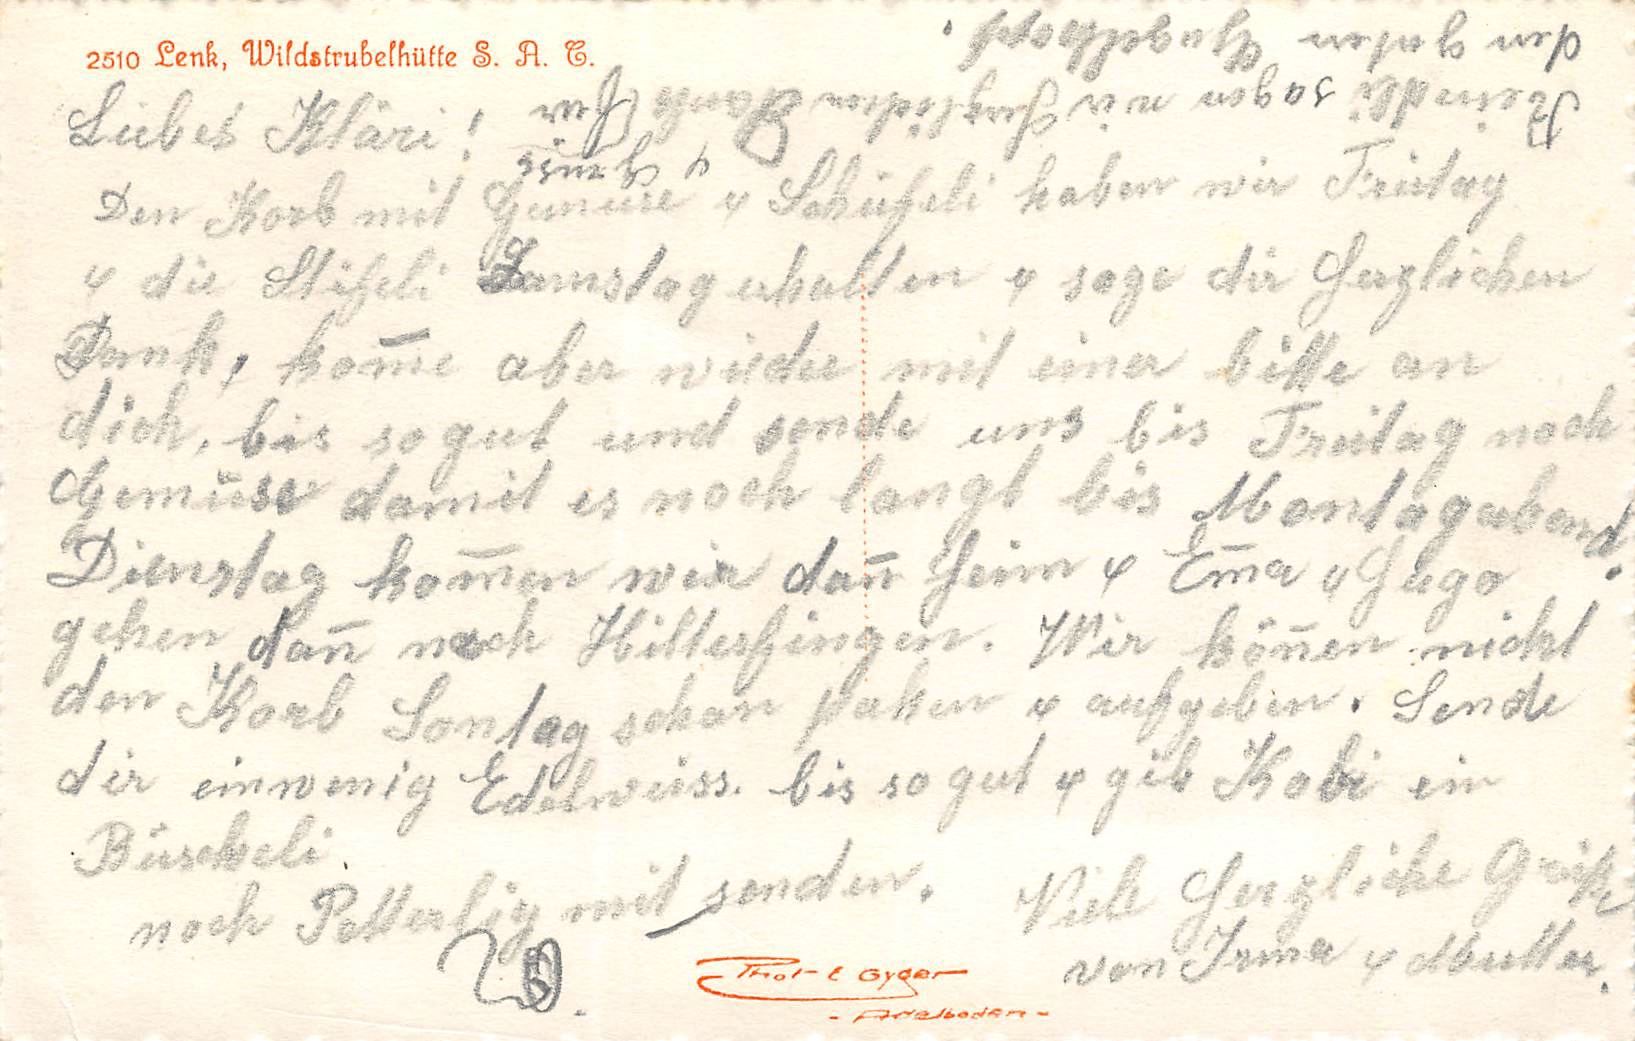 2510 Lenk, Wildstrubelhütte S. A. C.
Liebes Kläri!
Den Korb mit Gemüse u Schüfeli haben wir Freitag
u die Stifeli Samstag erhalten u sage dir Herzlichen
Dank, kom̄e aber wieder mit einer bitte an
dich, bis so gut und sende uns bis Freitag noch
Gemüse damit es noch langt bis Montagabend.
Dienstag kom̄en wir dan̄ Heim u Em̄a u Hugo
gehen dan̄ nach Hilterfingen. Wir kön̄en nicht
den Korb Sontag schon paken u aufgeben. Sende
dir einwenig Edelweiss. bis so gut u gib Kobi ein
Büscheli
noch Petterlig mit senden.
Viele Herzliche Grüsse
von Irma u Mutter.
sagen wir Herzlichen Dank Für
den guten
Phot. E Gyger
- Adelboden -